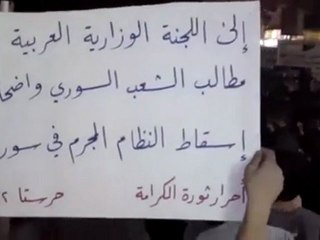 إلى اللجنة الوزارية العربية
مطالب الشعب السوري
إسقاط النظام المجرم في
أحرار ثورة الكرامة حرستا